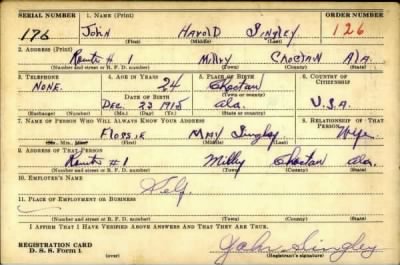 SERIAL NUMBER 1. NAME (Print) ORDER NUMBER
176 John Harold Singley 126
(First) (Middle) (Last)
2. ADDRESS (Print)
Route # 1 Milky Choctaw Ala.
(Number and street or R. F. D. number) (Town) (County) (State)
3. TELEPHONE 4. AGE IN YEARS 5. PLACE OF BIRTH 6. COUNTRY OF CITIZENSHIP
NONE. 24 Choctaw
DATE OF BIRTH (Town or county)
Dec. 23 1915 Ala. U.S.A.
(Exchange) (Number) (Mo.) (Day) (Yr.) (State or country)
7. NAME OF PERSON WHO WILL ALWAYS KNOW YOUR ADDRESS 8. RELATIONSHIP OF THAT PERSON
Flossie May Singley. Wife.
Mrs. (First) (Middle) (Last)
9. ADDRESS OF THAT PERSON
Route #1 Milky Choctaw Ala.
(Number and street or R. F. D. number) (Town) (County) (State)
10. EMPLOYER'S NAME
Self.
11. PLACE OF EMPLOYMENT OR BUSINESS
(Number and street or R. F. D. number) (Town) (County) (State)
I AFFIRM THAT I HAVE VERIFIED ABOVE ANSWERS AND THAT THEY ARE TRUE.
REGISTRATION CARD John Singley
D. S. S. Form 1. (over) (Registrant's signature)